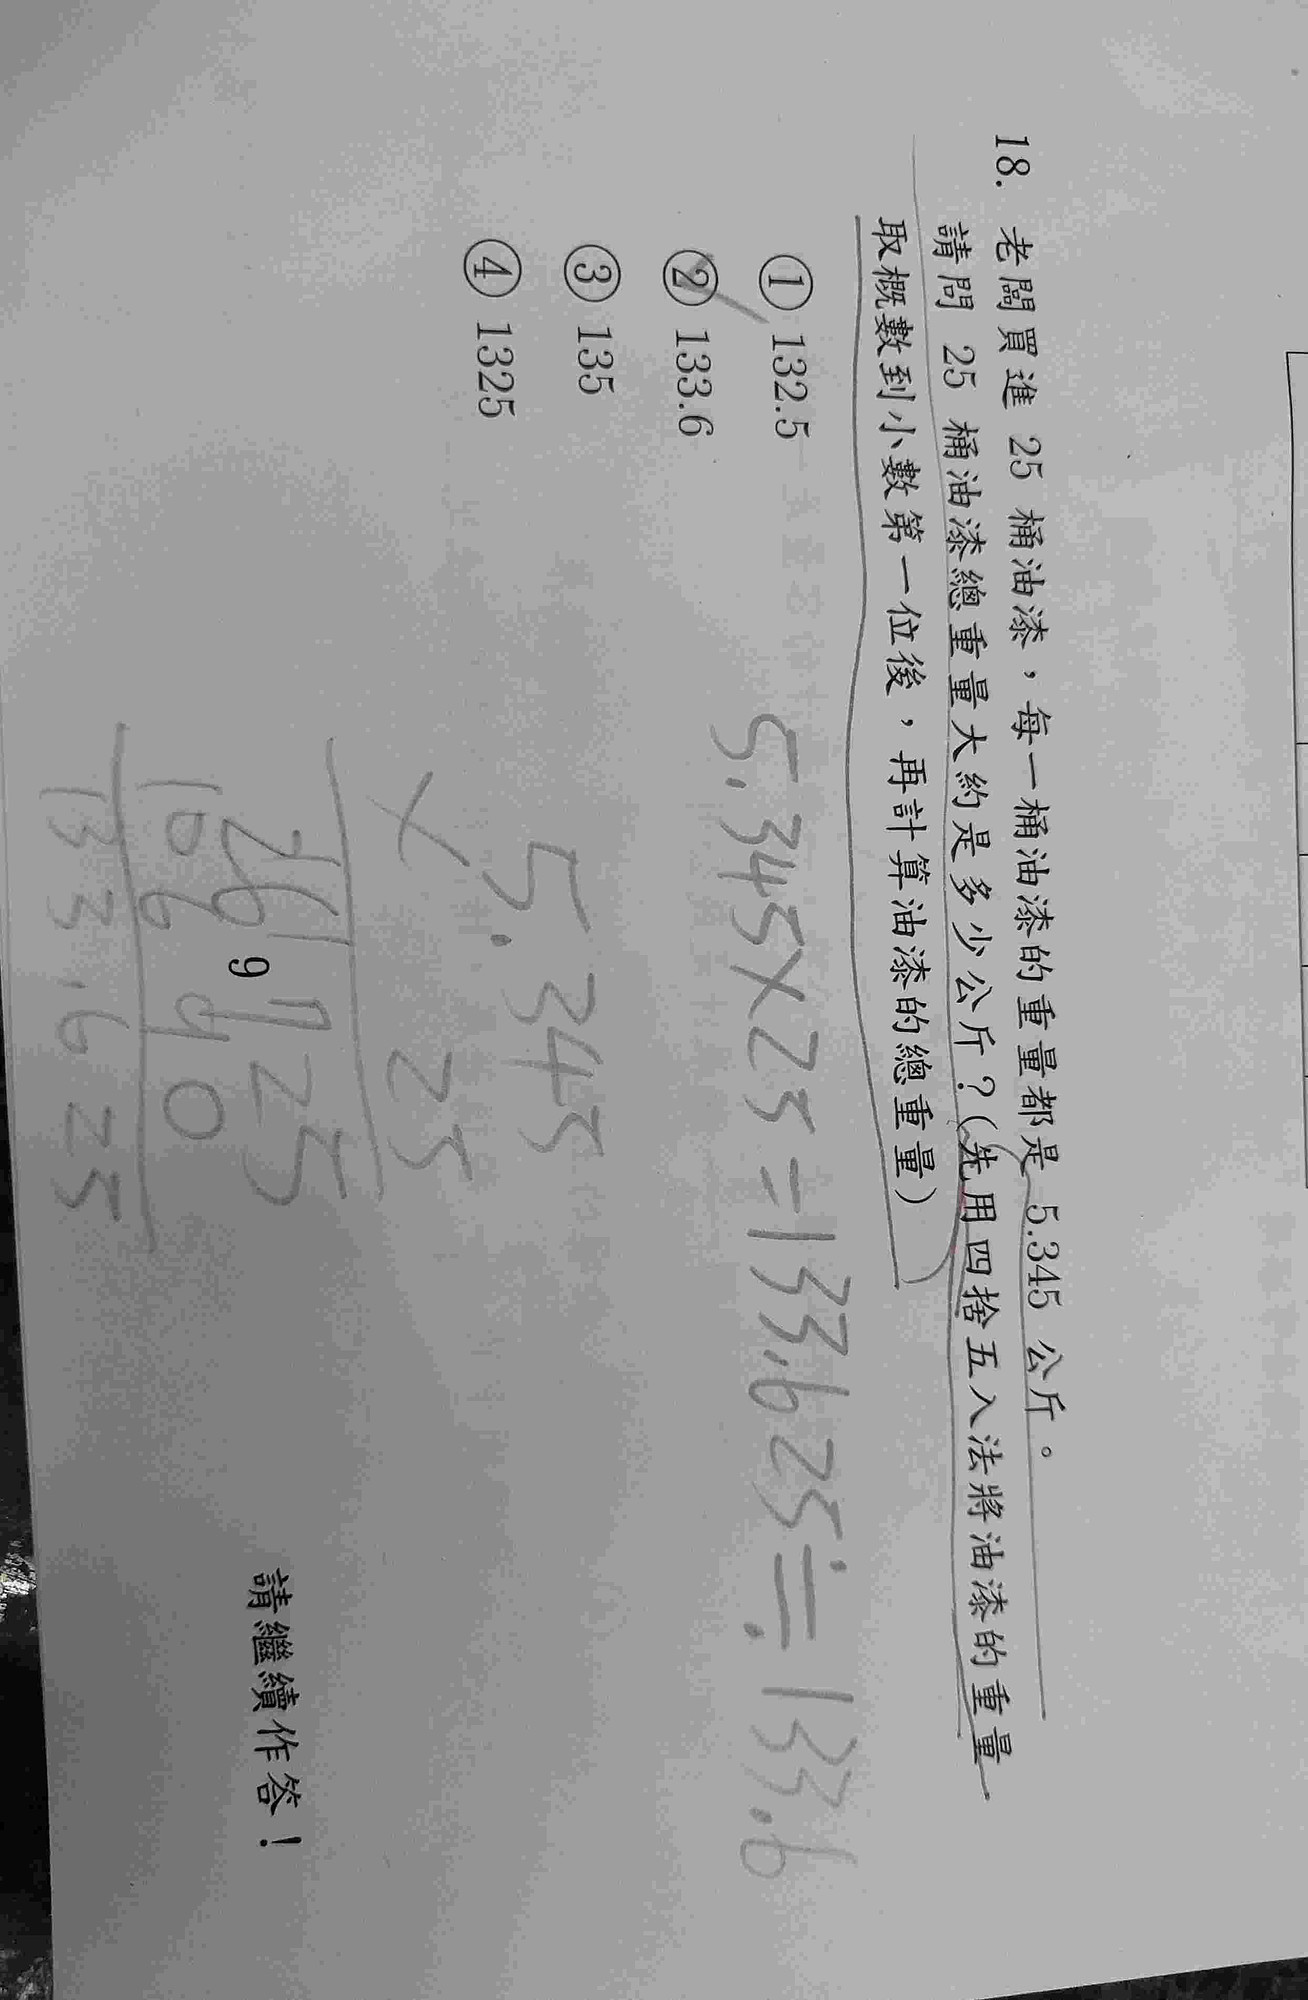 18. 老闆買進 25 桶油漆，每一桶油漆的重量都是 5.345 公斤。
請問 25 桶油漆總重量大約是多少公斤？(先用四捨五入法將油漆的重量
取概數到小數第一位後，再計算油漆的總重量)
① 132.5
② 133.6
③ 135
④ 1325
5.345×25=133.625≒133.6
5.345
× 25
26725
10690
133.625
9
請繼續作答！